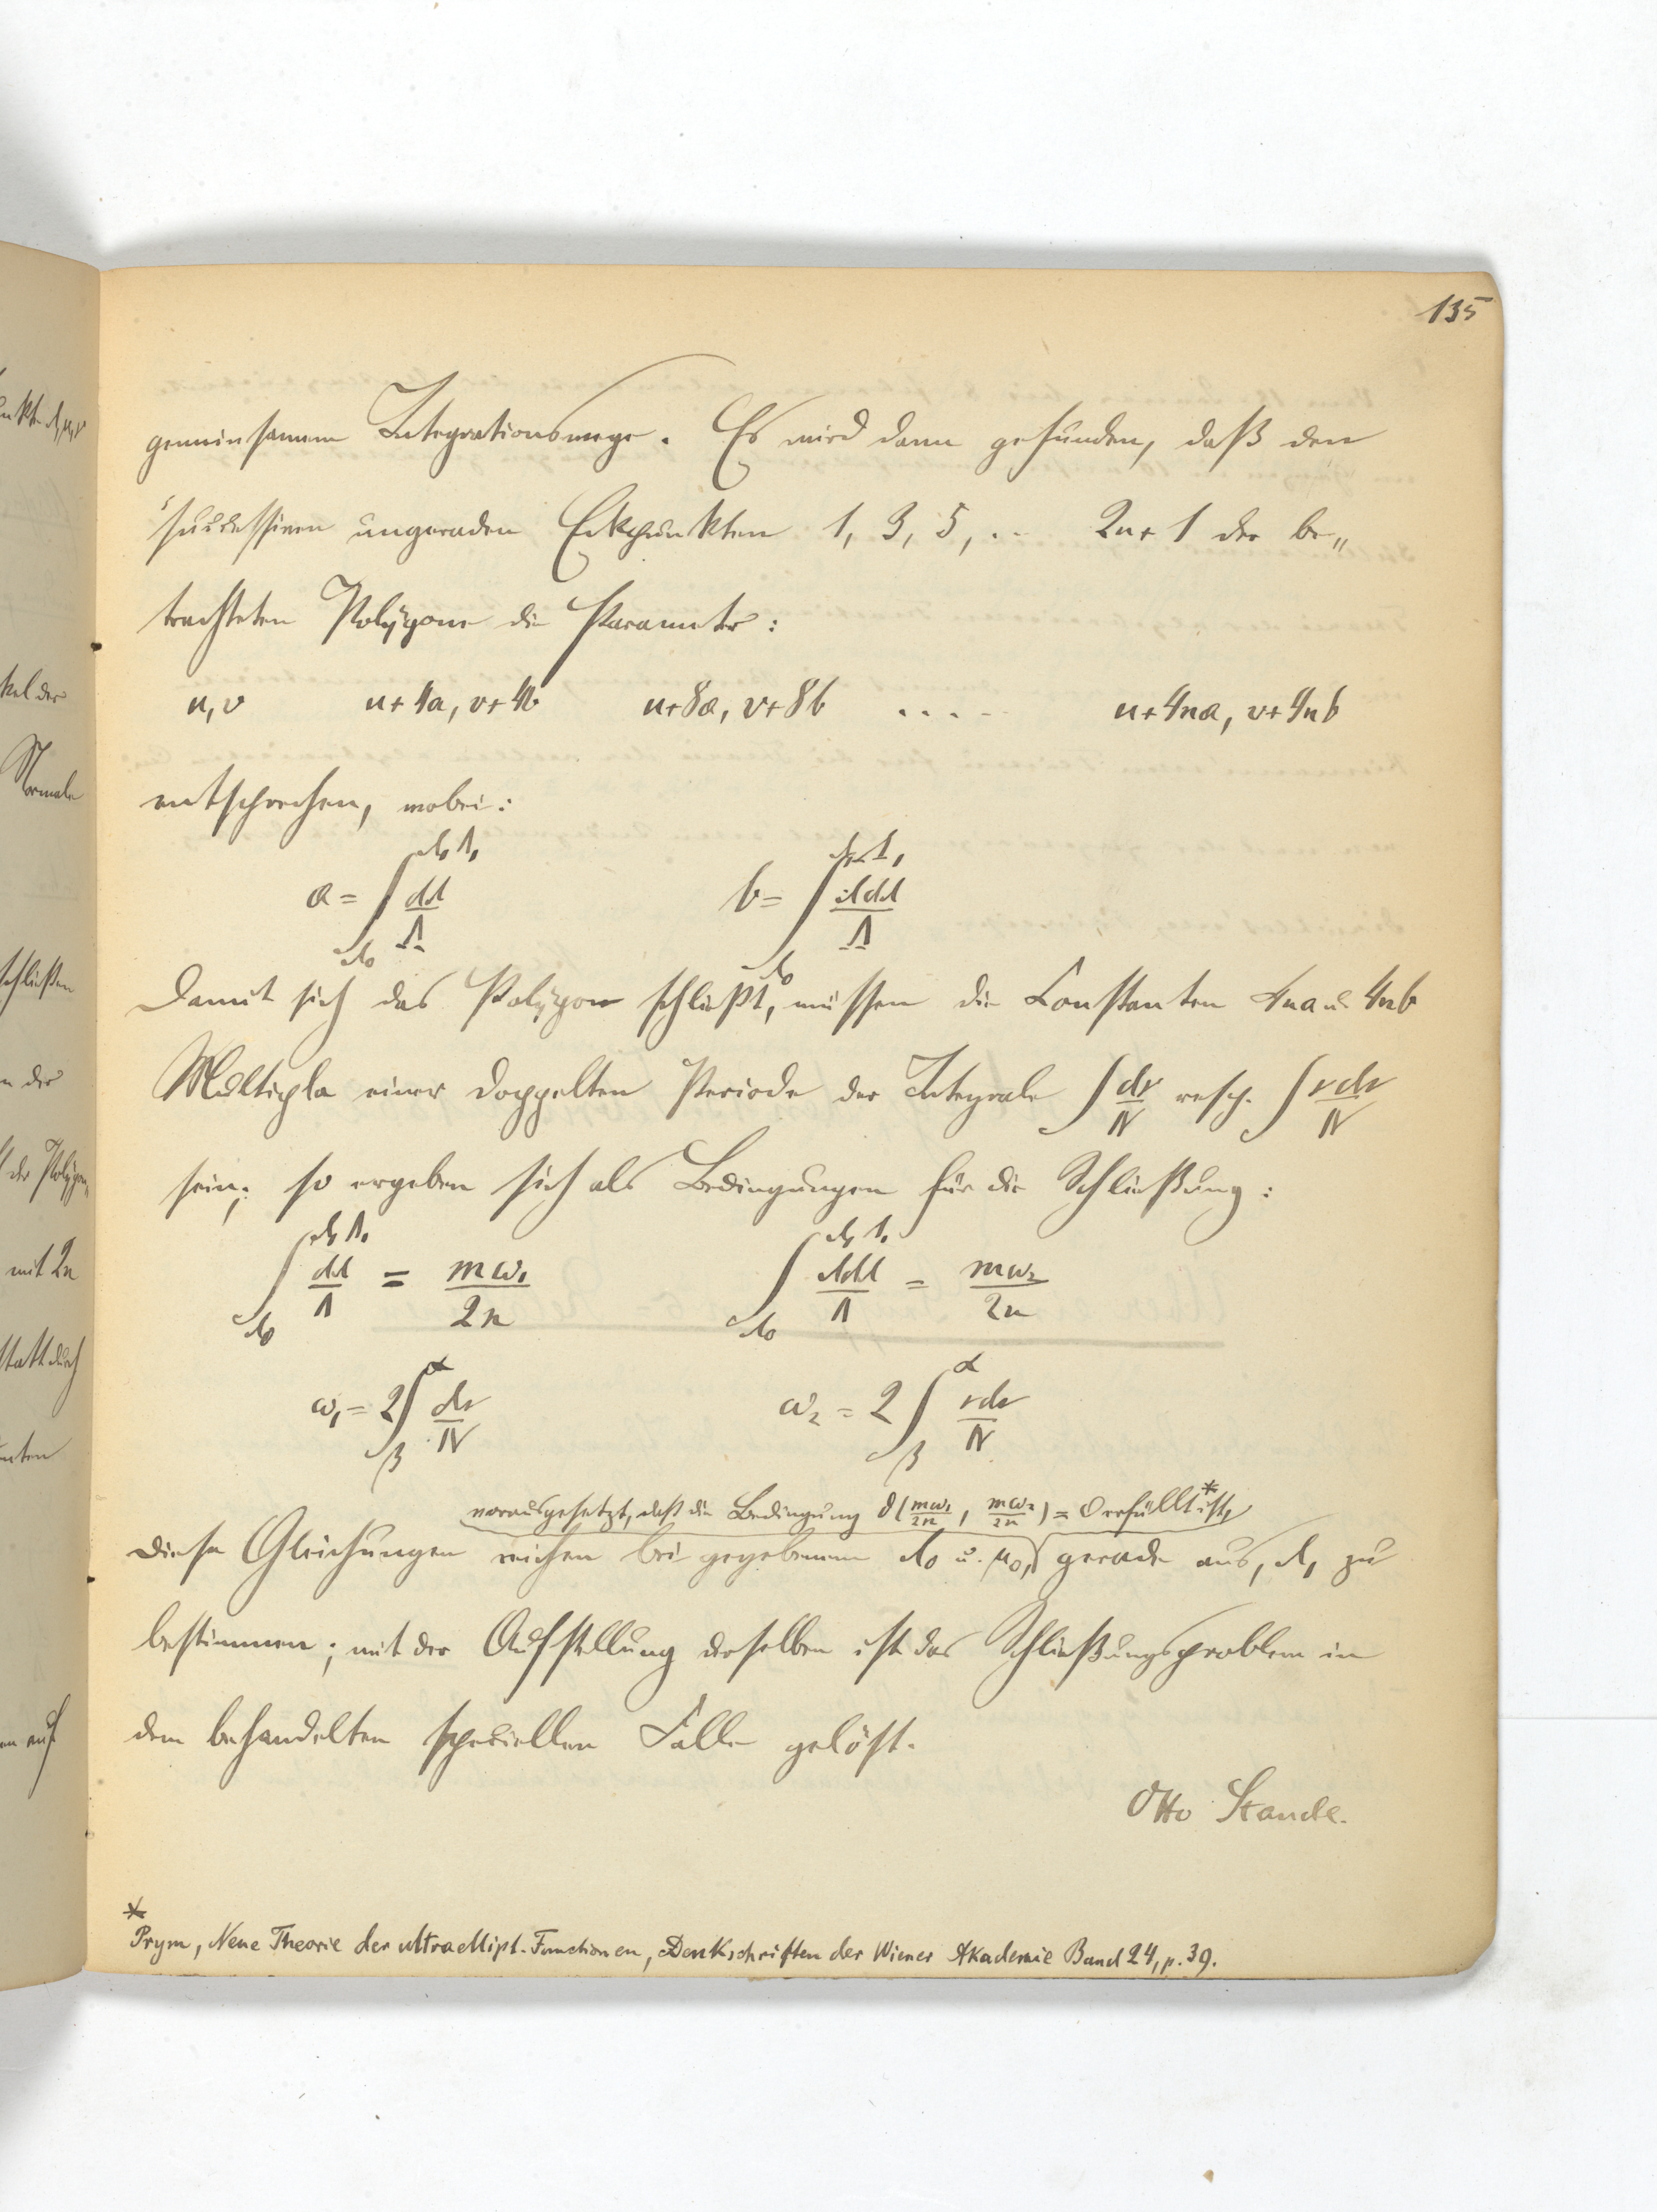 135
gemeinsamem Integrationswege. Es wird dann gefunden, daß den
successiven ungeraden Eckpunkten 1, 3, 5, .. 2n+1 der be„
trachteten Polygone die Parameter:
u, v u+4a, v+4b u+8a, v+8b ..... u+4na, v+4nb
entsprechen, wobei:
a = ∫_{λ₀}^{λ₁Λ₁} dλ/Λ b = ∫_{λ₀}^{λ₁Λ₁} λdλ/Λ
Damit sich das Polygon schließt, müssen die Constanten 4na u. 4nb
Multipla einer doppelten Periode der Integrale ∫ dν/N resp. ∫ νdν/N
sein; so ergeben sich als Bedingungen für die Schließung:
∫_{λ₀}^{λ₁Λ₁} dλ/Λ = mω₁/2n ∫_{λ₀}^{λ₁Λ₁} λdλ/Λ = mω₂/2n
ω₁ = 2∫_β^α dν/N ω₂ = 2∫_β^α νdν/N
vorausgesetzt, daß die Bedingung ϑ(mω₁/2n, mω₂/2n) = 0 erfüllt* ist,
Diese Gleichungen reichen bei gegebenem λ₀ u. μ₀, gerade aus, λ₁ zu
bestimmen; mit der Aufstellung derselben ist das Schließungsproblem in
dem behandelten speciellen Falle gelöst.
Otto Staude.
* Prym, Neue Theorie der ultraellipt. Functionen, Denkschriften der Wiener Akademie Band 24, p. 39.